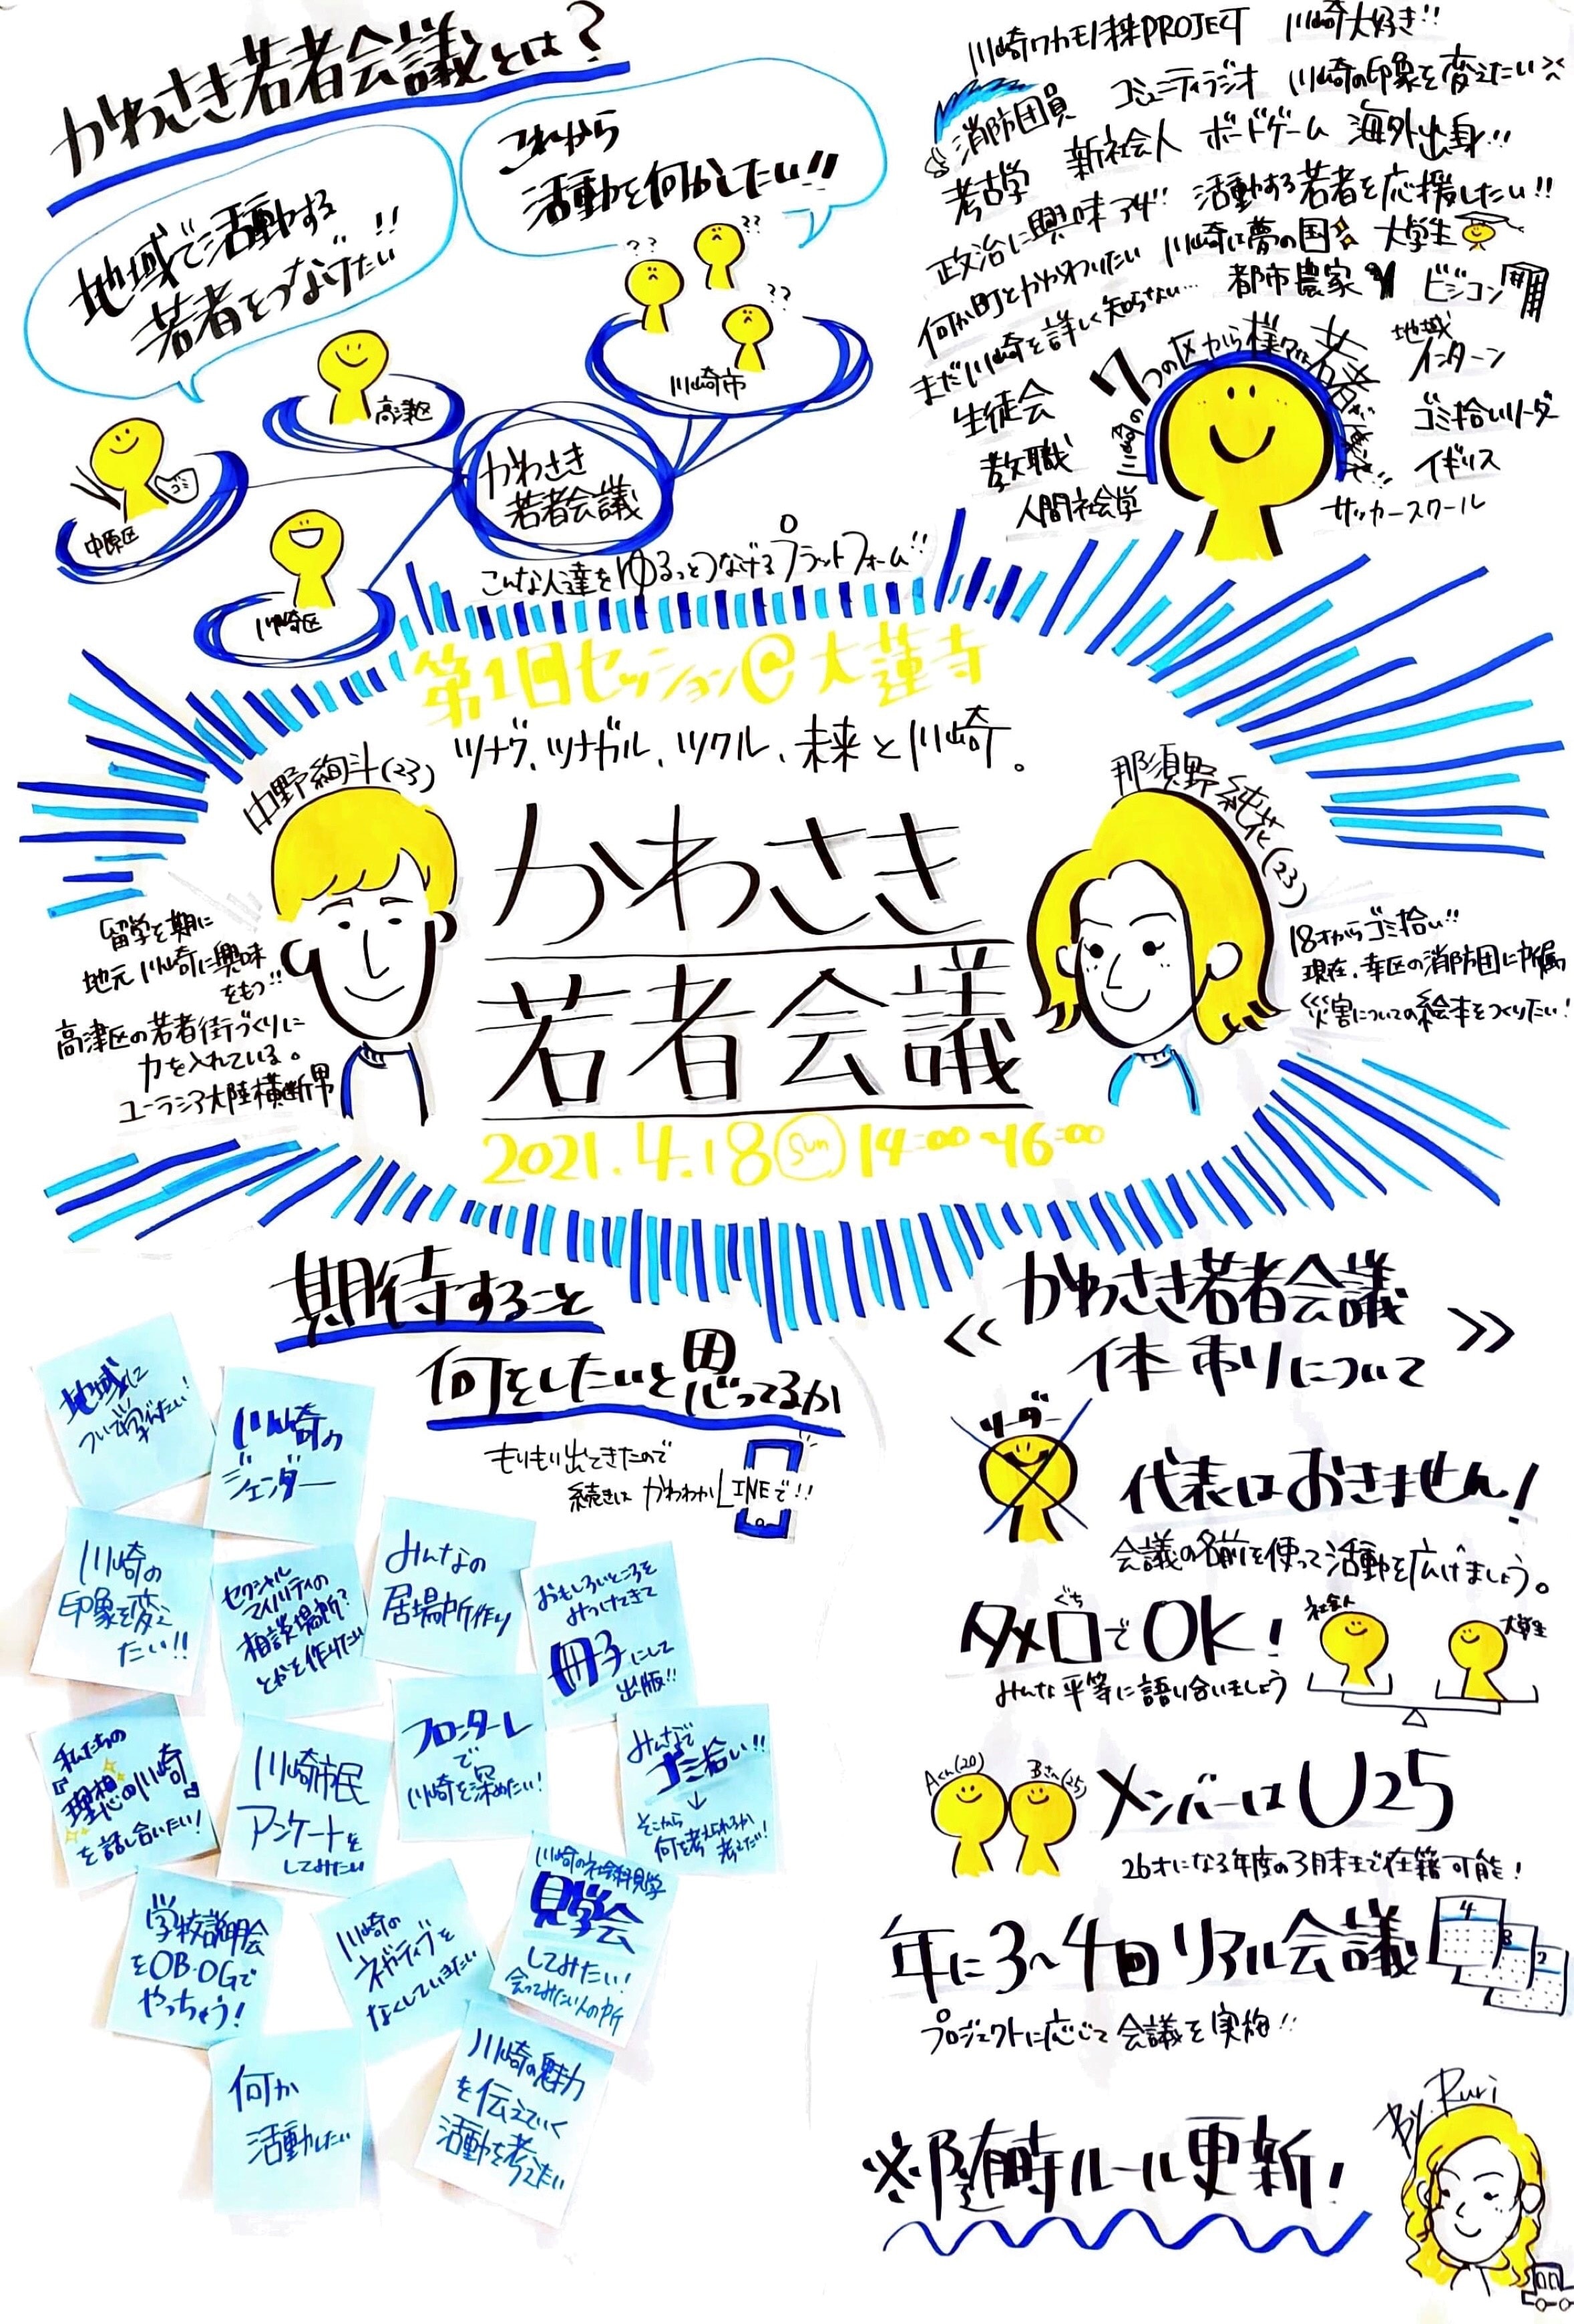 かわさき若者会議とは?
地域で活動する
若者をつなげたい!!
これから
活動を何かしたい!!
??
??
??
川崎市
高津区
中原区
ゴミ
川崎区
かわさき
若者会議
こんな人達をゆるっとつなげるプラットフォーム!!
川崎ワカモノ未来PROJECT 川崎大好き!!
消防団員 コミュニティラジオ 川崎の印象を変えたい
考古学 新社会人 ボードゲーム 海外出身!!
政治に興味アリ!! 活動する若者を応援したい!!
何か町とかかわりたい 川崎は夢の国 大学生
まだ川崎を詳しく知らない… 都市農家 ビジコン
生徒会
教職
人間社会学
川崎の7つの区から様々な若者が
地域
インターン
ゴミ拾いリーダー
イギリス
サッカースクール
第1回セッション@大蓮寺
ツナグ、ツナガル、ツクル、未来と川崎。
中野絢斗(23)
那須野純花(23)
かわさき
若者会議
留学を期に
地元川崎に興味
をもつ!!
高津区の若者街づくりに
力を入れている。
ユーラシア大陸横断男
18才からゴミ拾い!!
現在、幸区の消防団に所属
災害についての絵本をつくりたい!
2021.4.18 Sun 14:00~16:00
期待すること
何をしたいと思ってるか
もりもり出てきたので
続きは かわわかLINEで!!
地域に
ついて学びたい!
川崎の
ジェンダー
川崎の
印象を変え
たい!!
セクシャル
マイノリティの
相談場所?
とかを作りたい
みんなの
居場所作り
おもしろいところを
みつけてきて
冊子にして
出版!!
私たちの
『理想の川崎』
を話し合いたい!
川崎市民
アンケートを
してみたい
フロンターレ
で
川崎を深めたい!
みんなで
ゴミ拾い!!
↓
そこから
何を考えられるか
考えたい!
学校説明会
をOB・OGで
やっちゃう!
川崎の
ネガティブを
なくしていきたい
川崎の社会科見学
見学会
してみたい!
会ってみたい人の所
何か
活動したい
川崎の魅力
を伝えていく
活動を考えたい
≪かわさき若者会議
体制りについて≫
リーダー
代表はおきません!
会議の名前を使って活動を広げましょう。
タメ口でOK!
ぐち
みんな平等に語り合いましょう
社会人
大学生
Aくん(20)
Bさん(25)
メンバーはU25
26才になる年度の3月末まで在籍可能!
年に3~4回リアル会議
4
8
2
プロジェクトに応じて会議を実施!!
※随時ルール更新!
By.Ruri